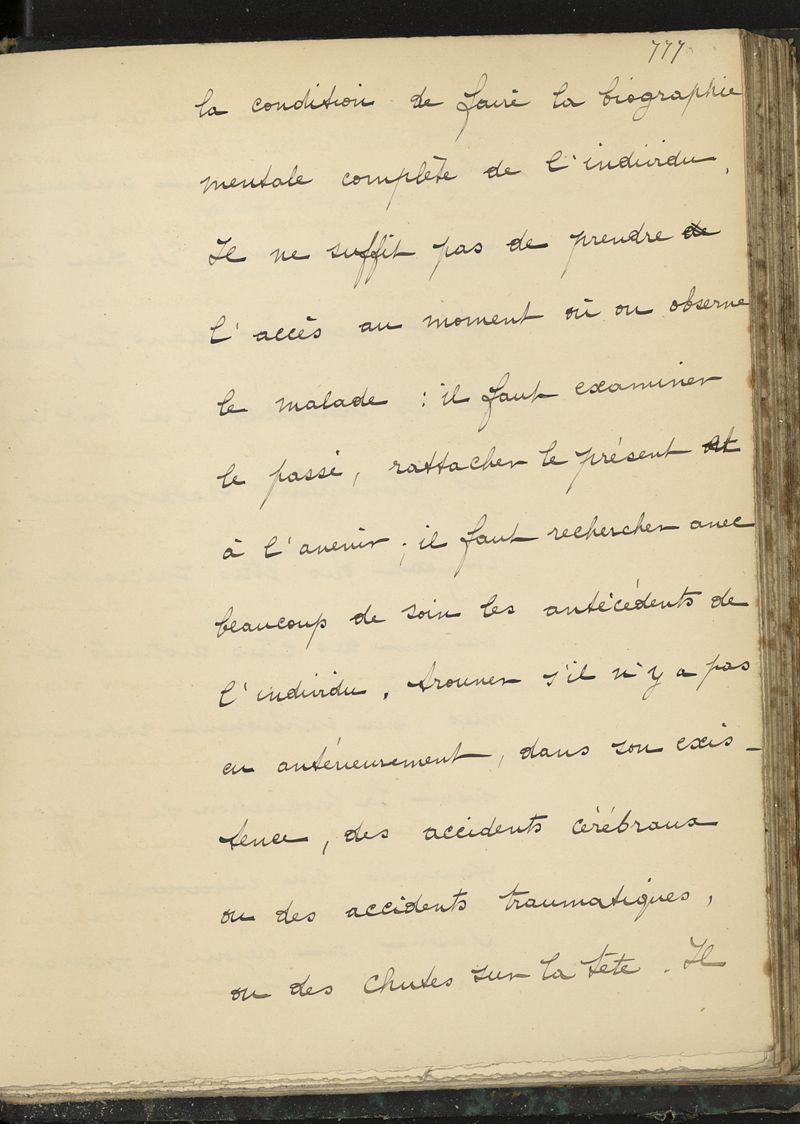 777
la condition de faire la biographie
mentale complète de l'individu.
Il ne suffit pas de prendre de
l'accès au moment où on observe
le malade : il faut examiner
le passé, rattacher le présent et
à l'avenir ; il faut rechercher avec
beaucoup de soin les antécédents de
l'individu, trouver s'il n'y a pas
eu antérieurement, dans son exis-
tence, des accidents cérébraux
ou des accidents traumatiques,
ou des chutes sur la tête. Il